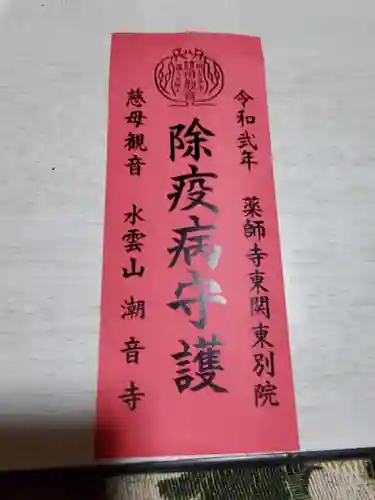 令和弐年　薬師寺東関東別院
除疫病守護
慈母観音　水雲山　潮音寺